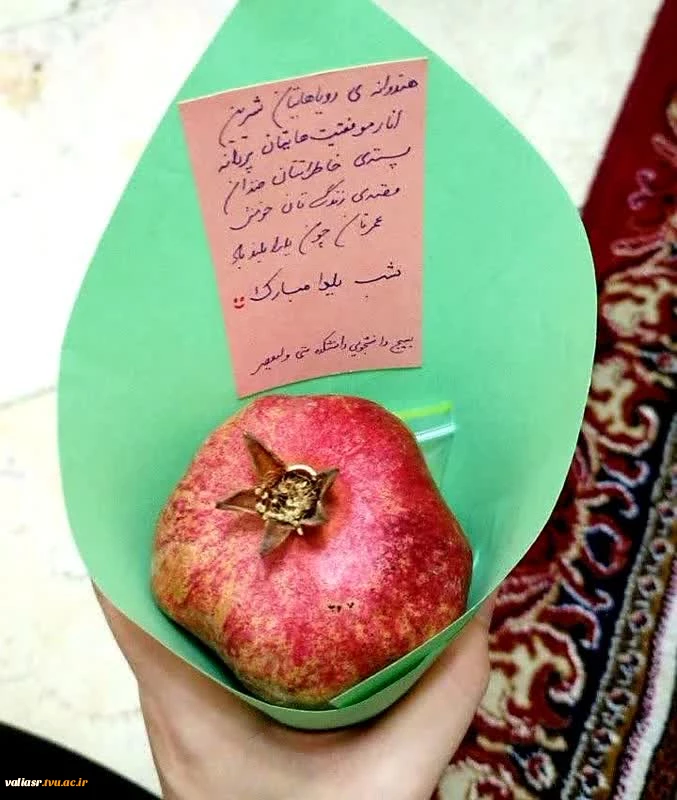 هندوانه ی رویاهایتان شیرین
انار موفقیت هایتان پردانه
پسته ی خاطراتتان خندان
قصه ی زندگی تان خوش
عمرتان چون یلدا بلند باد
شب یلدا مبارک!
بسیج دانشجویی دانشکده فنی ولیعصر
valiasr.tvu.ac.ir